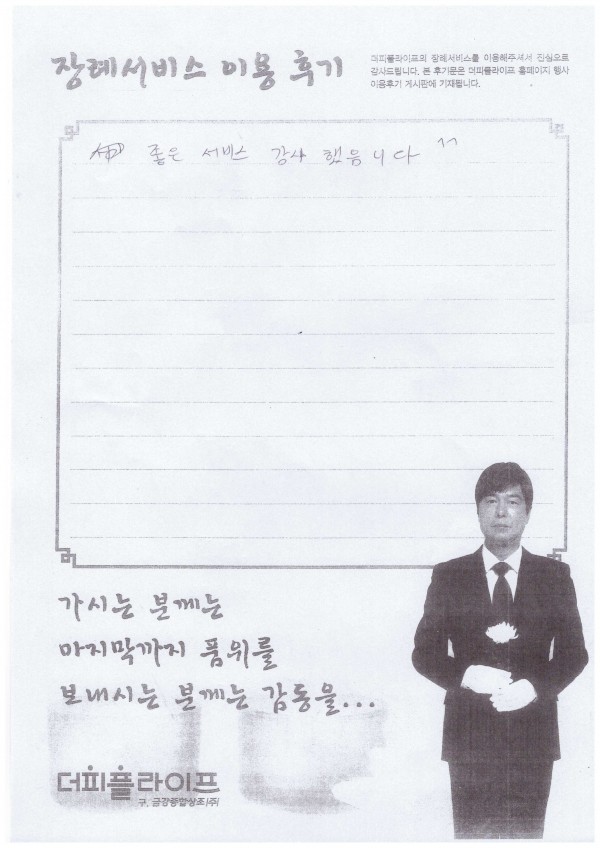 장례서비스 이용 후기
더피플라이프의 장례서비스를 이용해주셔서 진심으로
감사드립니다. 본 후기문은 더피플라이프 홈페이지 행사
이용후기 게시판에 기재됩니다.
좋은 서비스 감사 했습니다 ^^
가시는 분께는
마지막까지 품위를
보내시는 분께는 감동을...
더피플라이프
구. 금강종합상조(주)